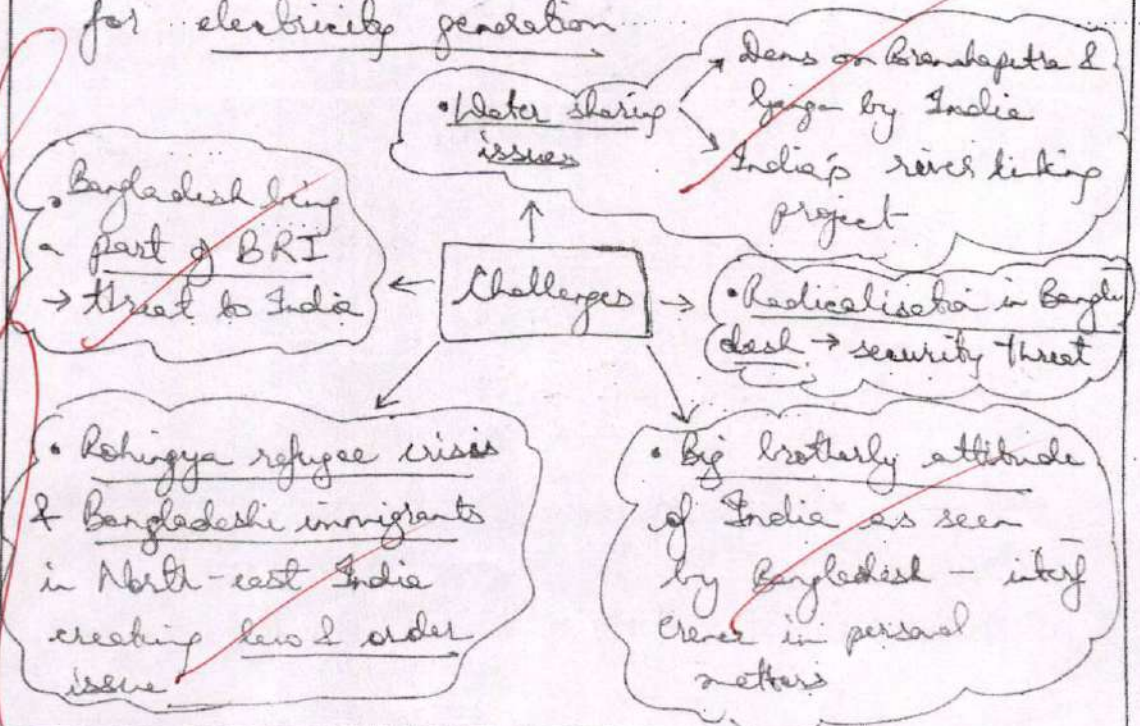 for electricity generation
• Water sharing
issues
Dams on Bramhaputra &
Ganga by India
India's river linking
project
• Bangladesh being
a part of BRI
→ threat to India
Challenges
• Radicalisation in Bangla
desh → security threat
• Rohingya refugee crisis
& Bangladeshi immigrants
in North-east India
creating law & order
issue
• Big brotherly attitude
of India as seen
by Bangladesh – interf
erence in personal
matters